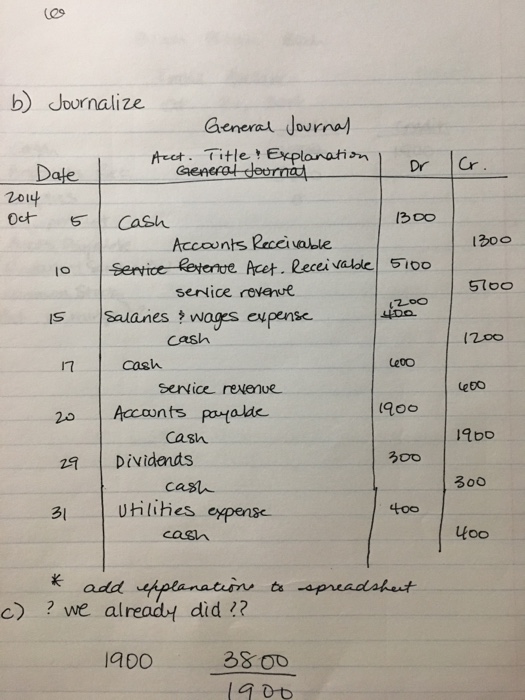 b) Journalize
General Journal
Date Acct. Title & Explanation Dr Cr.
General Journal
2014
Oct 5 Cash 1300
Accounts Receivable 1300
10 Service Revenue Acct. Receivable 5100
service revenue 5100
15 Salaries & wages expense 400 1200
cash 1200
17 cash 600
Service revenue 600
20 Accounts payable 1900
Cash 1900
29 Dividends 300
cash 300
31 Utilities expense 400
cash 400
* add explanations to spreadsheet
c) ? we already did ??
1900 3800
1900